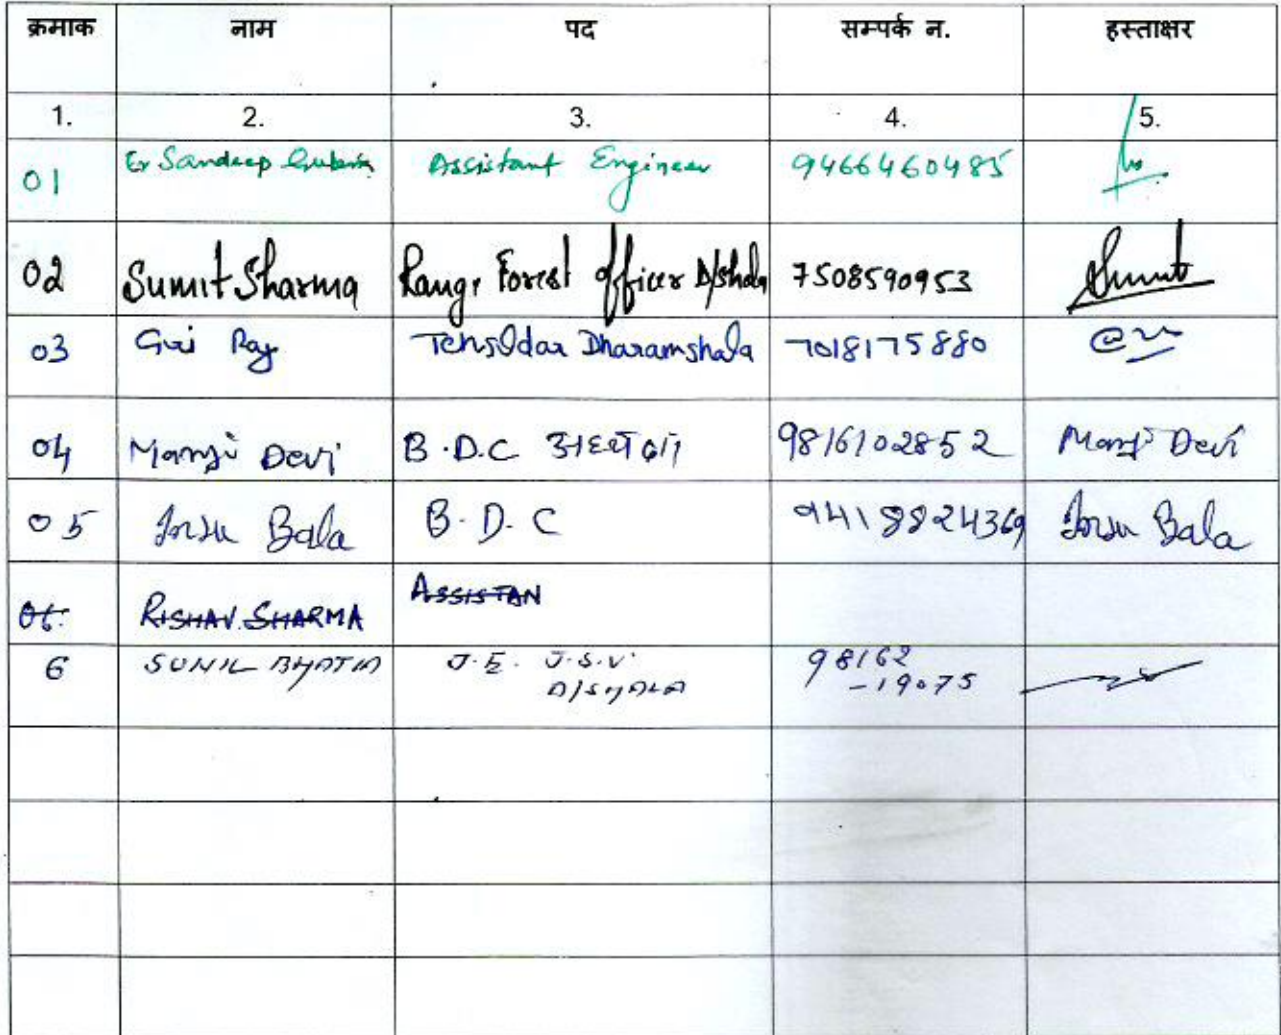 क्रमाक नाम पद सम्पर्क न. हस्ताक्षर
1. 2. 3. 4. 5.
01 Er Sandeep Assistant Engineer 9466460485
02 Sumit Sharma Range Forest Officer D/shala 7508590953 Sumit
03 Giri Raj Tehsildar Dharamshala 7018175880
04 Devi B.D.C 9816102852 Devi
05 Bala B.D.C 9418824369 Bala
06. RISHAV SHARMA ASSISTAN
6 SUNIL BHATIA J.E. J.S.V. 98162
D/SHALA -19075